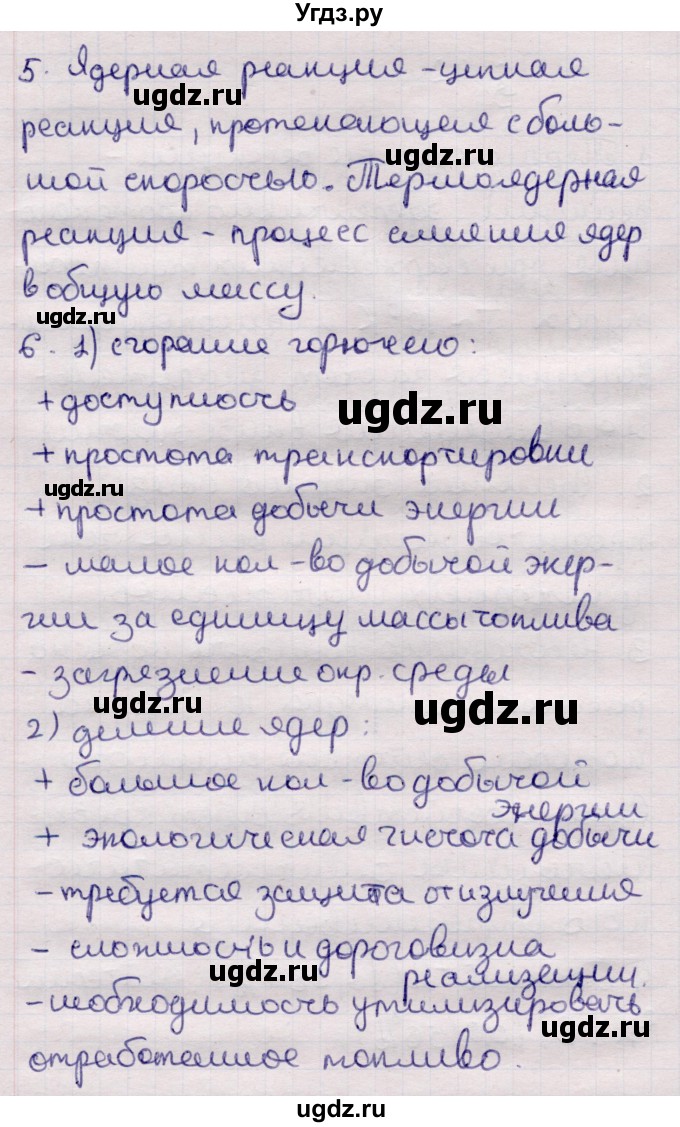 Угдз.ру
5. Ядерная реакция - цепная
ugdz.ru
реакция, протекающая с боль-
ugdz.ru
шой скоростью. Термоядерная
реакция - процесс слияния ядер
в общую массу.
ugdz.ru
6. 1) сгорание горючего:
+ доступность
ugdz.ru
+ простота транспортировки
ugdz.ru
+ простота добычи энергии
- малое кол-во добычой энер-
гии за единицу массы топлива
- загрязнение окр. среды
ugdz.ru ugdz.ru
2) деление ядер:
+ большое кол-во добычой
энергии
+ экологическая чистота добычи
- требуется защита от излучения
- сложность и дороговизна
ugdz.ru
реализации.
- необходимость утилизировать
ugdz.ru
отработанное топливо.
ugdz.ru